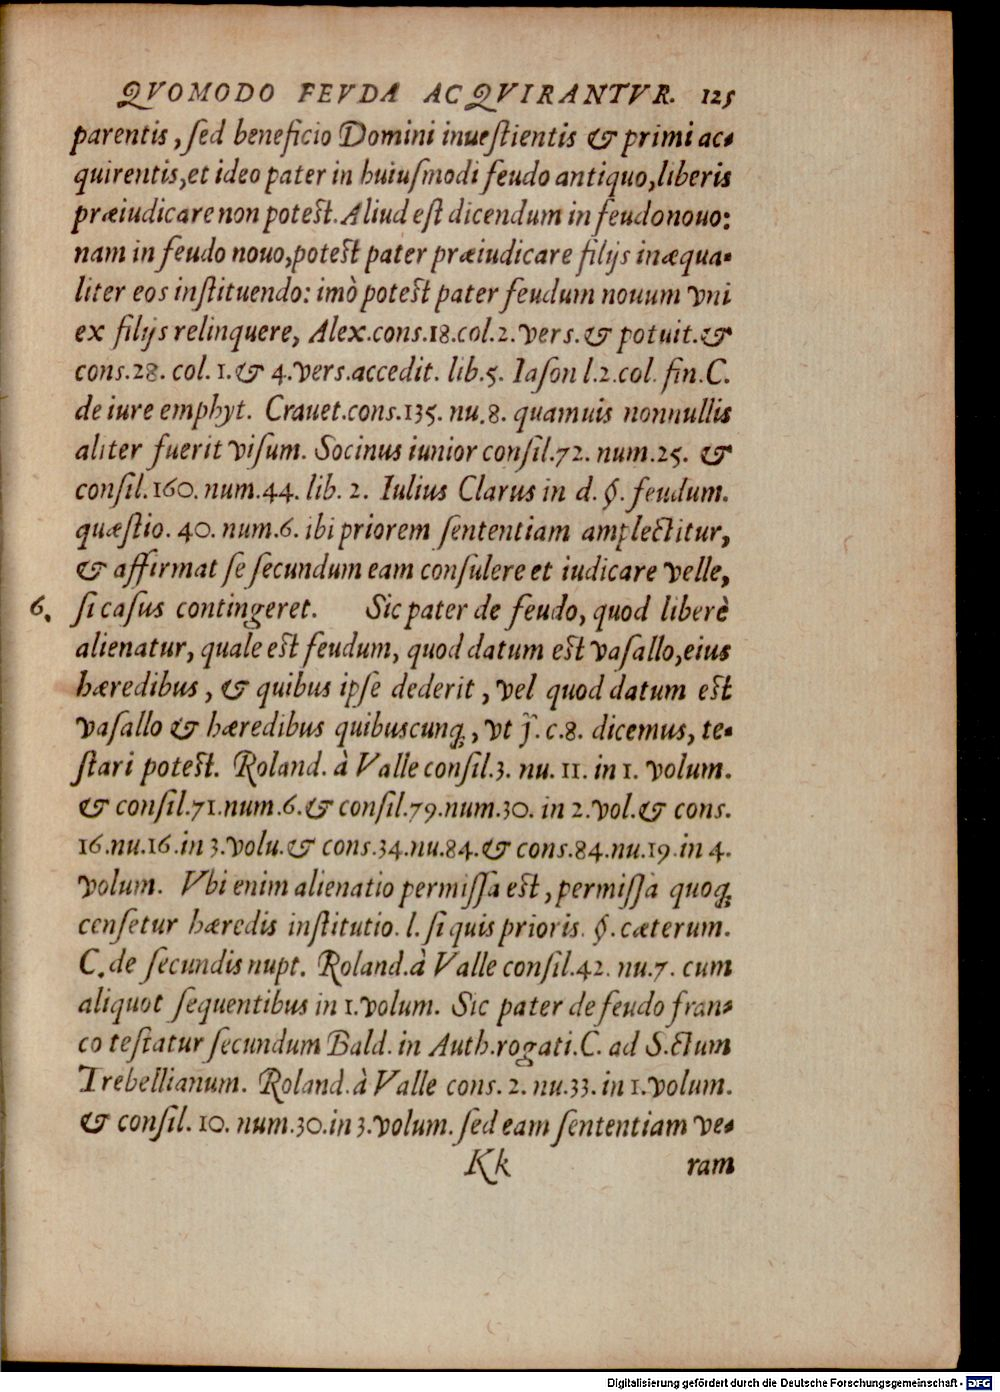 QVOMODO FEVDA ACQVIRANTVR. 125
parentis, ſed beneficio Domini inueſtientis & primi ac-
quirentis, et ideo pater in huiuſmodi feudo antiquo, liberis
præiudicare non poteſt. Aliud eſt dicendum in feudo nouo:
nam in feudo nouo, poteſt pater præiudicare filijs inæqua-
liter eos inſtituendo: imò poteſt pater feudum nouum vni
ex filijs relinquere, Alex. cons. 18. col. 2. verſ. & potuit. &
cons. 28. col. 1. & 4. verſ. accedit. lib. 5. Iaſon l. 2. col. fin. C.
de iure emphyt. Crauet. cons. 135. nu. 8. quamuis nonnullis
aliter fuerit viſum. Socinus iunior conſil. 72. num. 25. &
conſil. 160. num. 44. lib. 2. Iulius Clarus in d. §. feudum.
quæſtio. 40. num. 6. ibi priorem ſententiam amplectitur,
& affirmat ſe ſecundum eam conſulere et iudicare velle,
6. ſi caſus contingeret. Sic pater de feudo, quod liberè
alienatur, quale eſt feudum, quod datum eſt vaſallo, eius
hæredibus, & quibus ipſe dederit, vel quod datum eſt
vaſallo & hæredibus quibuscunq;, vt j. c. 8. dicemus, te-
ſtari poteſt. Roland. à Valle conſil. 3. nu. 11. in 1. volum.
& conſil. 71. num. 6. & conſil. 79. num. 30. in 2. vol. & cons.
16. nu. 16. in 3. volu. & cons. 34. nu. 84. & cons. 84. nu. 19. in 4.
volum. Vbi enim alienatio permiſſa eſt, permiſſa quoq;
cenſetur hæredis inſtitutio. l. ſi quis prioris. §. cæterum.
C. de ſecundis nupt. Roland. à Valle conſil. 42. nu. 7. cum
aliquot ſequentibus in 1. volum. Sic pater de feudo fran-
co teſtatur ſecundum Bald. in Auth. rogati. C. ad S.ctum
Trebellianum. Roland. à Valle cons. 2. nu. 33. in 1. volum.
& conſil. 10. num. 30. in 3. volum. ſed eam ſententiam ve-
Kk ram
Digitalisierung gefördert durch die Deutsche Forschungsgemeinschaft - DFG